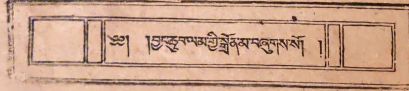 ༄༅། །བྱང་ཆུབ་ལམ་གྱི་སྒྲོན་མ་བཞུགས་སོ། །